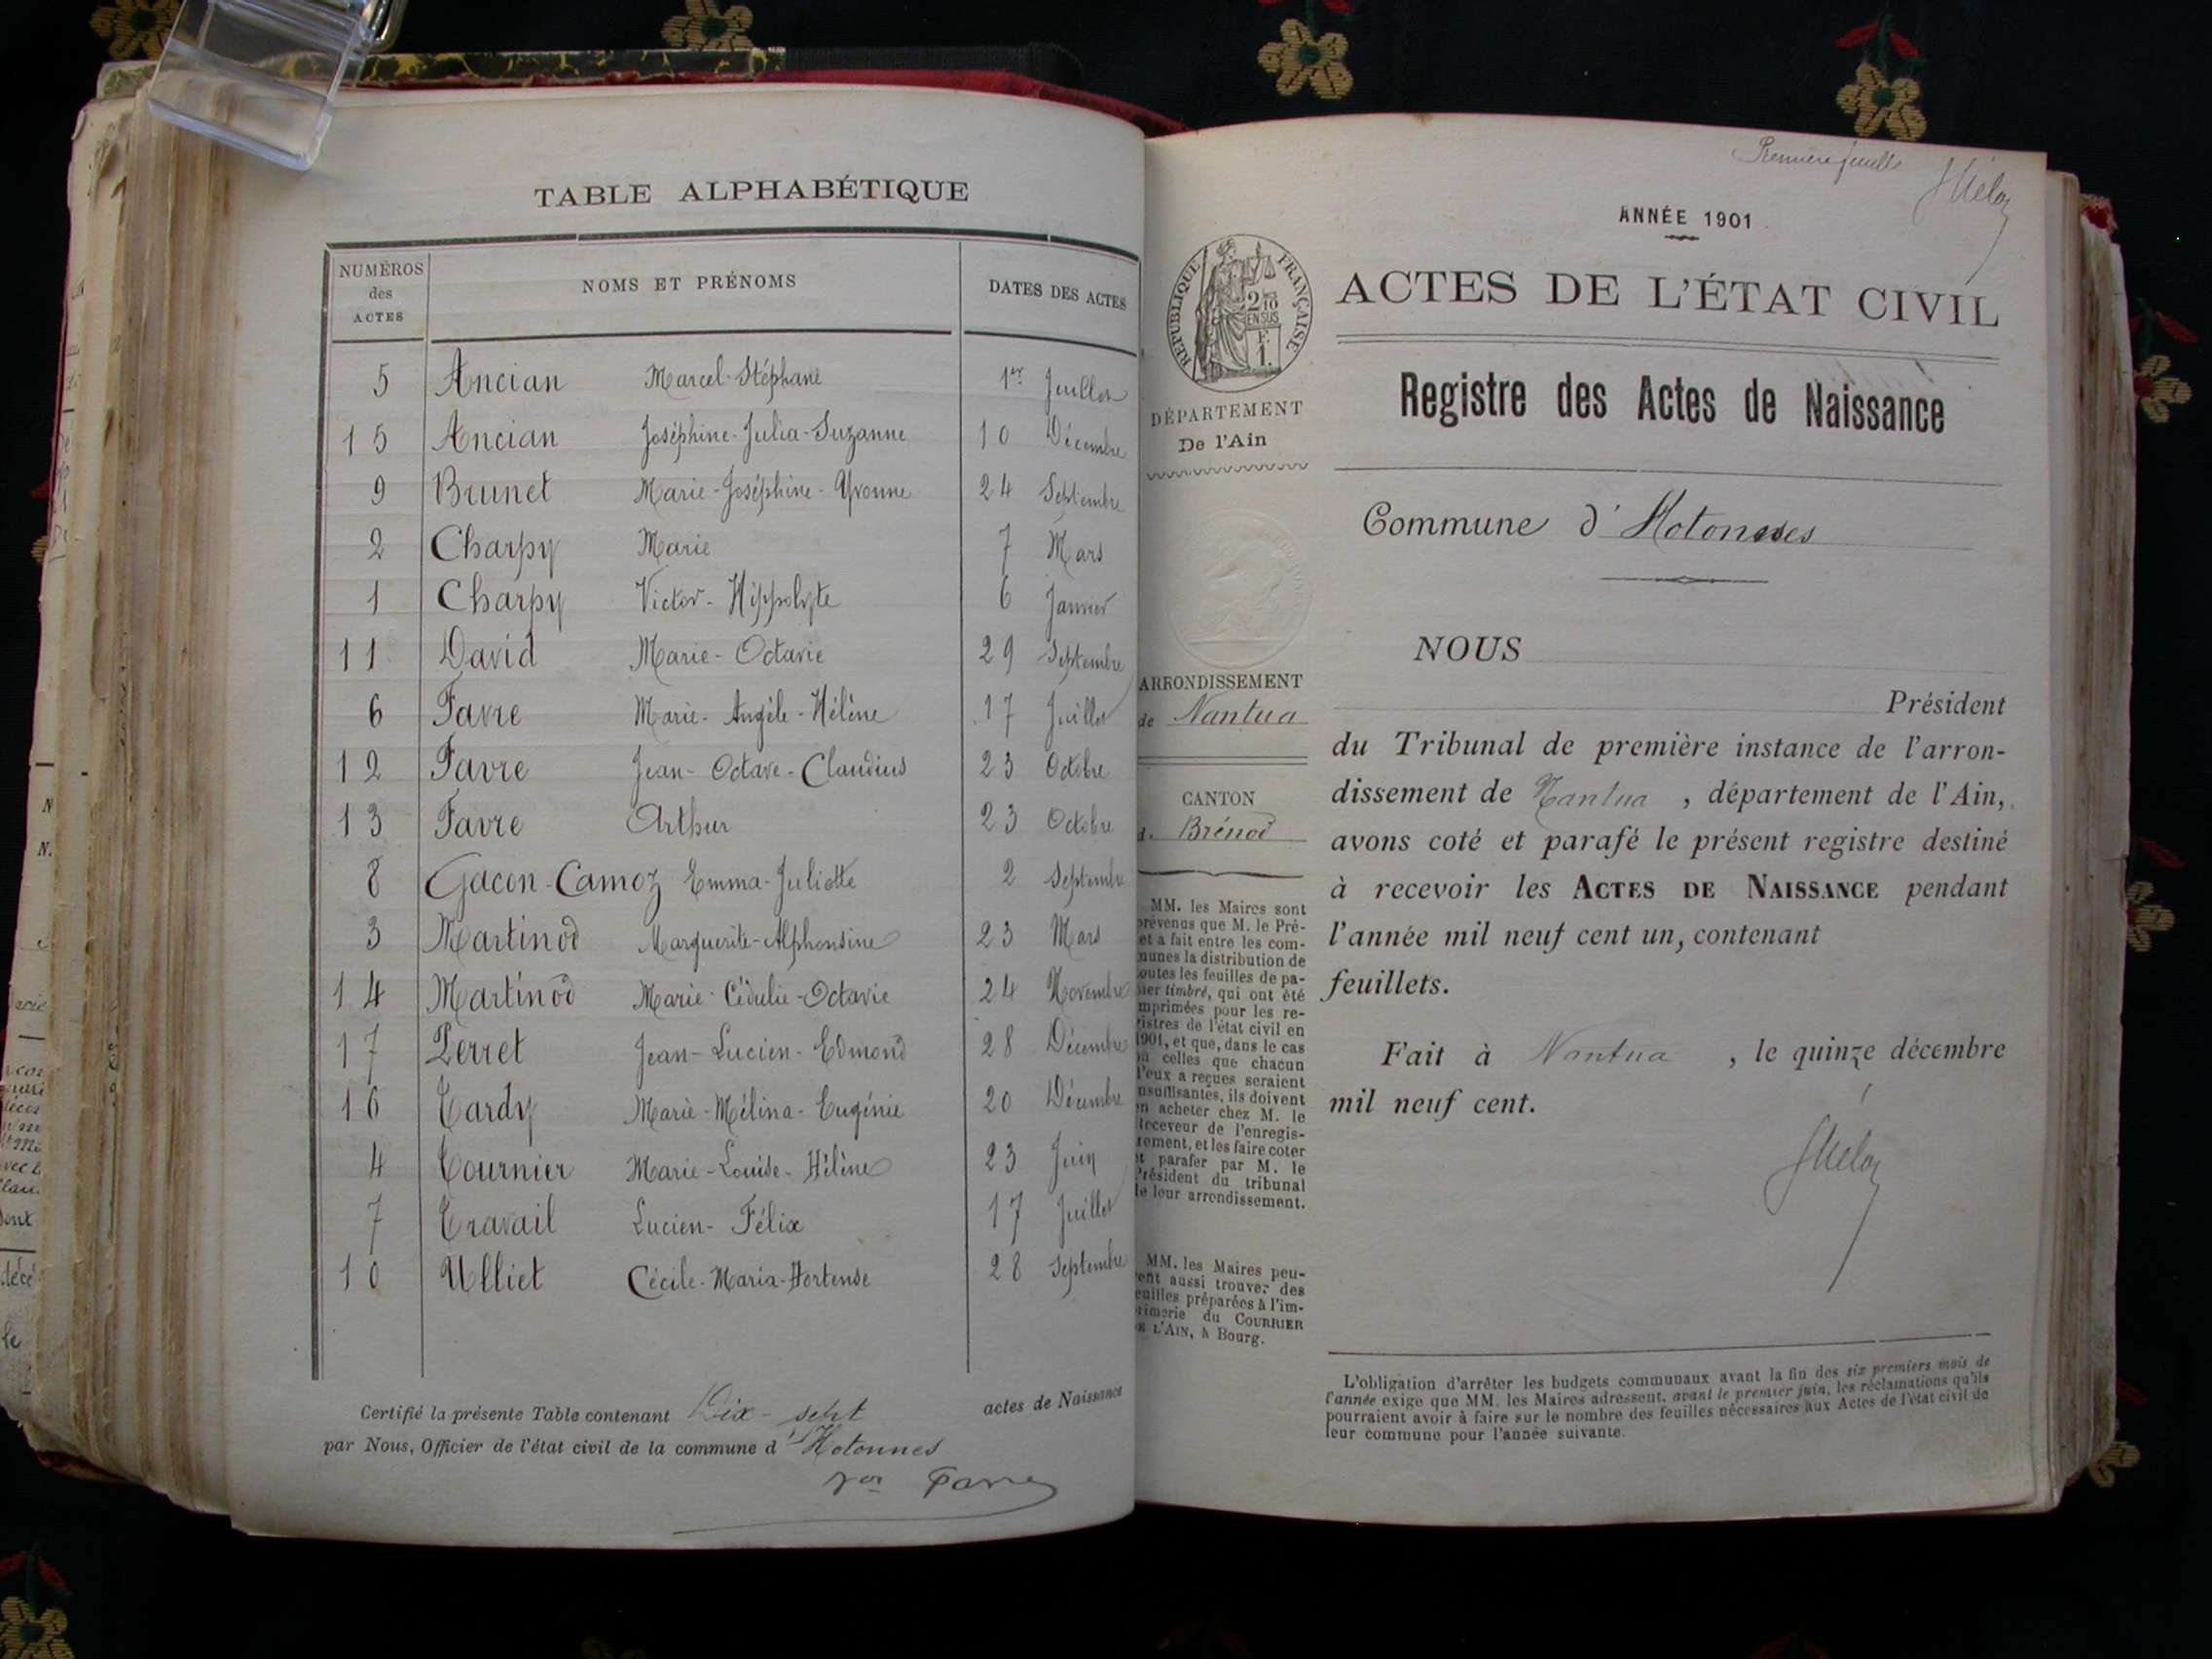 TABLE ALPHABÉTIQUE
NUMÉROS des ACTES
NOMS ET PRÉNOMS
DATES DES ACTES
5 Ancian Marcel-Stéphane 1er Juillet
15 Ancian Joséphine-Julia-Suzanne 10 Décembre
9 Brunet Marie-Joséphine-Yvonne 24 Septembre
2 Charpy Marie 7 Mars
1 Charpy Victor-Hippolyte 6 Janvier
11 David Marie-Octavie 29 Septembre
6 Favre Marie-Angèle-Hélène 17 Juillet
12 Favre Jean-Octave-Claudius 23 Octobre
13 Favre Arthur 23 Octobre
8 Gacon-Camoz Emma-Juliette 2 Septembre
3 Martinod Marguerite-Alphonsine 23 Mars
14 Martinod Marie-Cédulie-Octavie 24 Novembre
17 Perret Jean-Lucien-Edmond 28 Décembre
16 Tardy Marie-Mélina-Eugénie 20 Décembre
4 Tournier Marie-Louise-Hélène 23 Juin
7 Travail Lucien-Félix 17 Juillet
10 Ulliet Cécile-Maria-Hortense 28 Septembre
Certifié la présente Table contenant Dix-sept actes de Naissance
par Nous, Officier de l'état civil de la commune d'Hotonnes
Favre
Première feuille
ANNÉE 1901
RÉPUBLIQUE FRANÇAISE
2/10 EN SUS
F. 1.
ACTES DE L'ÉTAT CIVIL
DÉPARTEMENT
De l'Ain
Registre des Actes de Naissance
Commune d'Hotonnes
ARRONDISSEMENT
de Nantua
CANTON
de Brénod
MM. les Maires sont
prévenus que M. le Pré-
fet a fait entre les com-
munes la distribution de
toutes les feuilles de pa-
pier timbré, qui ont été
imprimées pour les re-
gistres de l'état civil en
1901, et que, dans le cas
où celles que chacun
d'eux a reçues seraient
insuffisantes, ils doivent
en acheter chez M. le
Receveur de l'enregis-
trement, et les faire coter
et parafer par M. le
Président du tribunal
de leur arrondissement.
MM. les Maires peu-
vent aussi trouver des
feuilles préparées à l'im-
primerie du COURRIER
DE L'AIN, à Bourg.
NOUS
Président
du Tribunal de première instance de l'arron-
dissement de Nantua, département de l'Ain,
avons coté et parafé le présent registre destiné
à recevoir les ACTES DE NAISSANCE pendant
l'année mil neuf cent un, contenant
feuillets.
Fait à Nantua, le quinze décembre
mil neuf cent.
L'obligation d'arrêter les budgets communaux avant la fin des six premiers mois de
l'année exige que MM. les Maires adressent, avant le premier juin, les réclamations qu'ils
pourraient avoir à faire sur le nombre des feuilles nécessaires aux Actes de l'état civil de
leur commune pour l'année suivante.